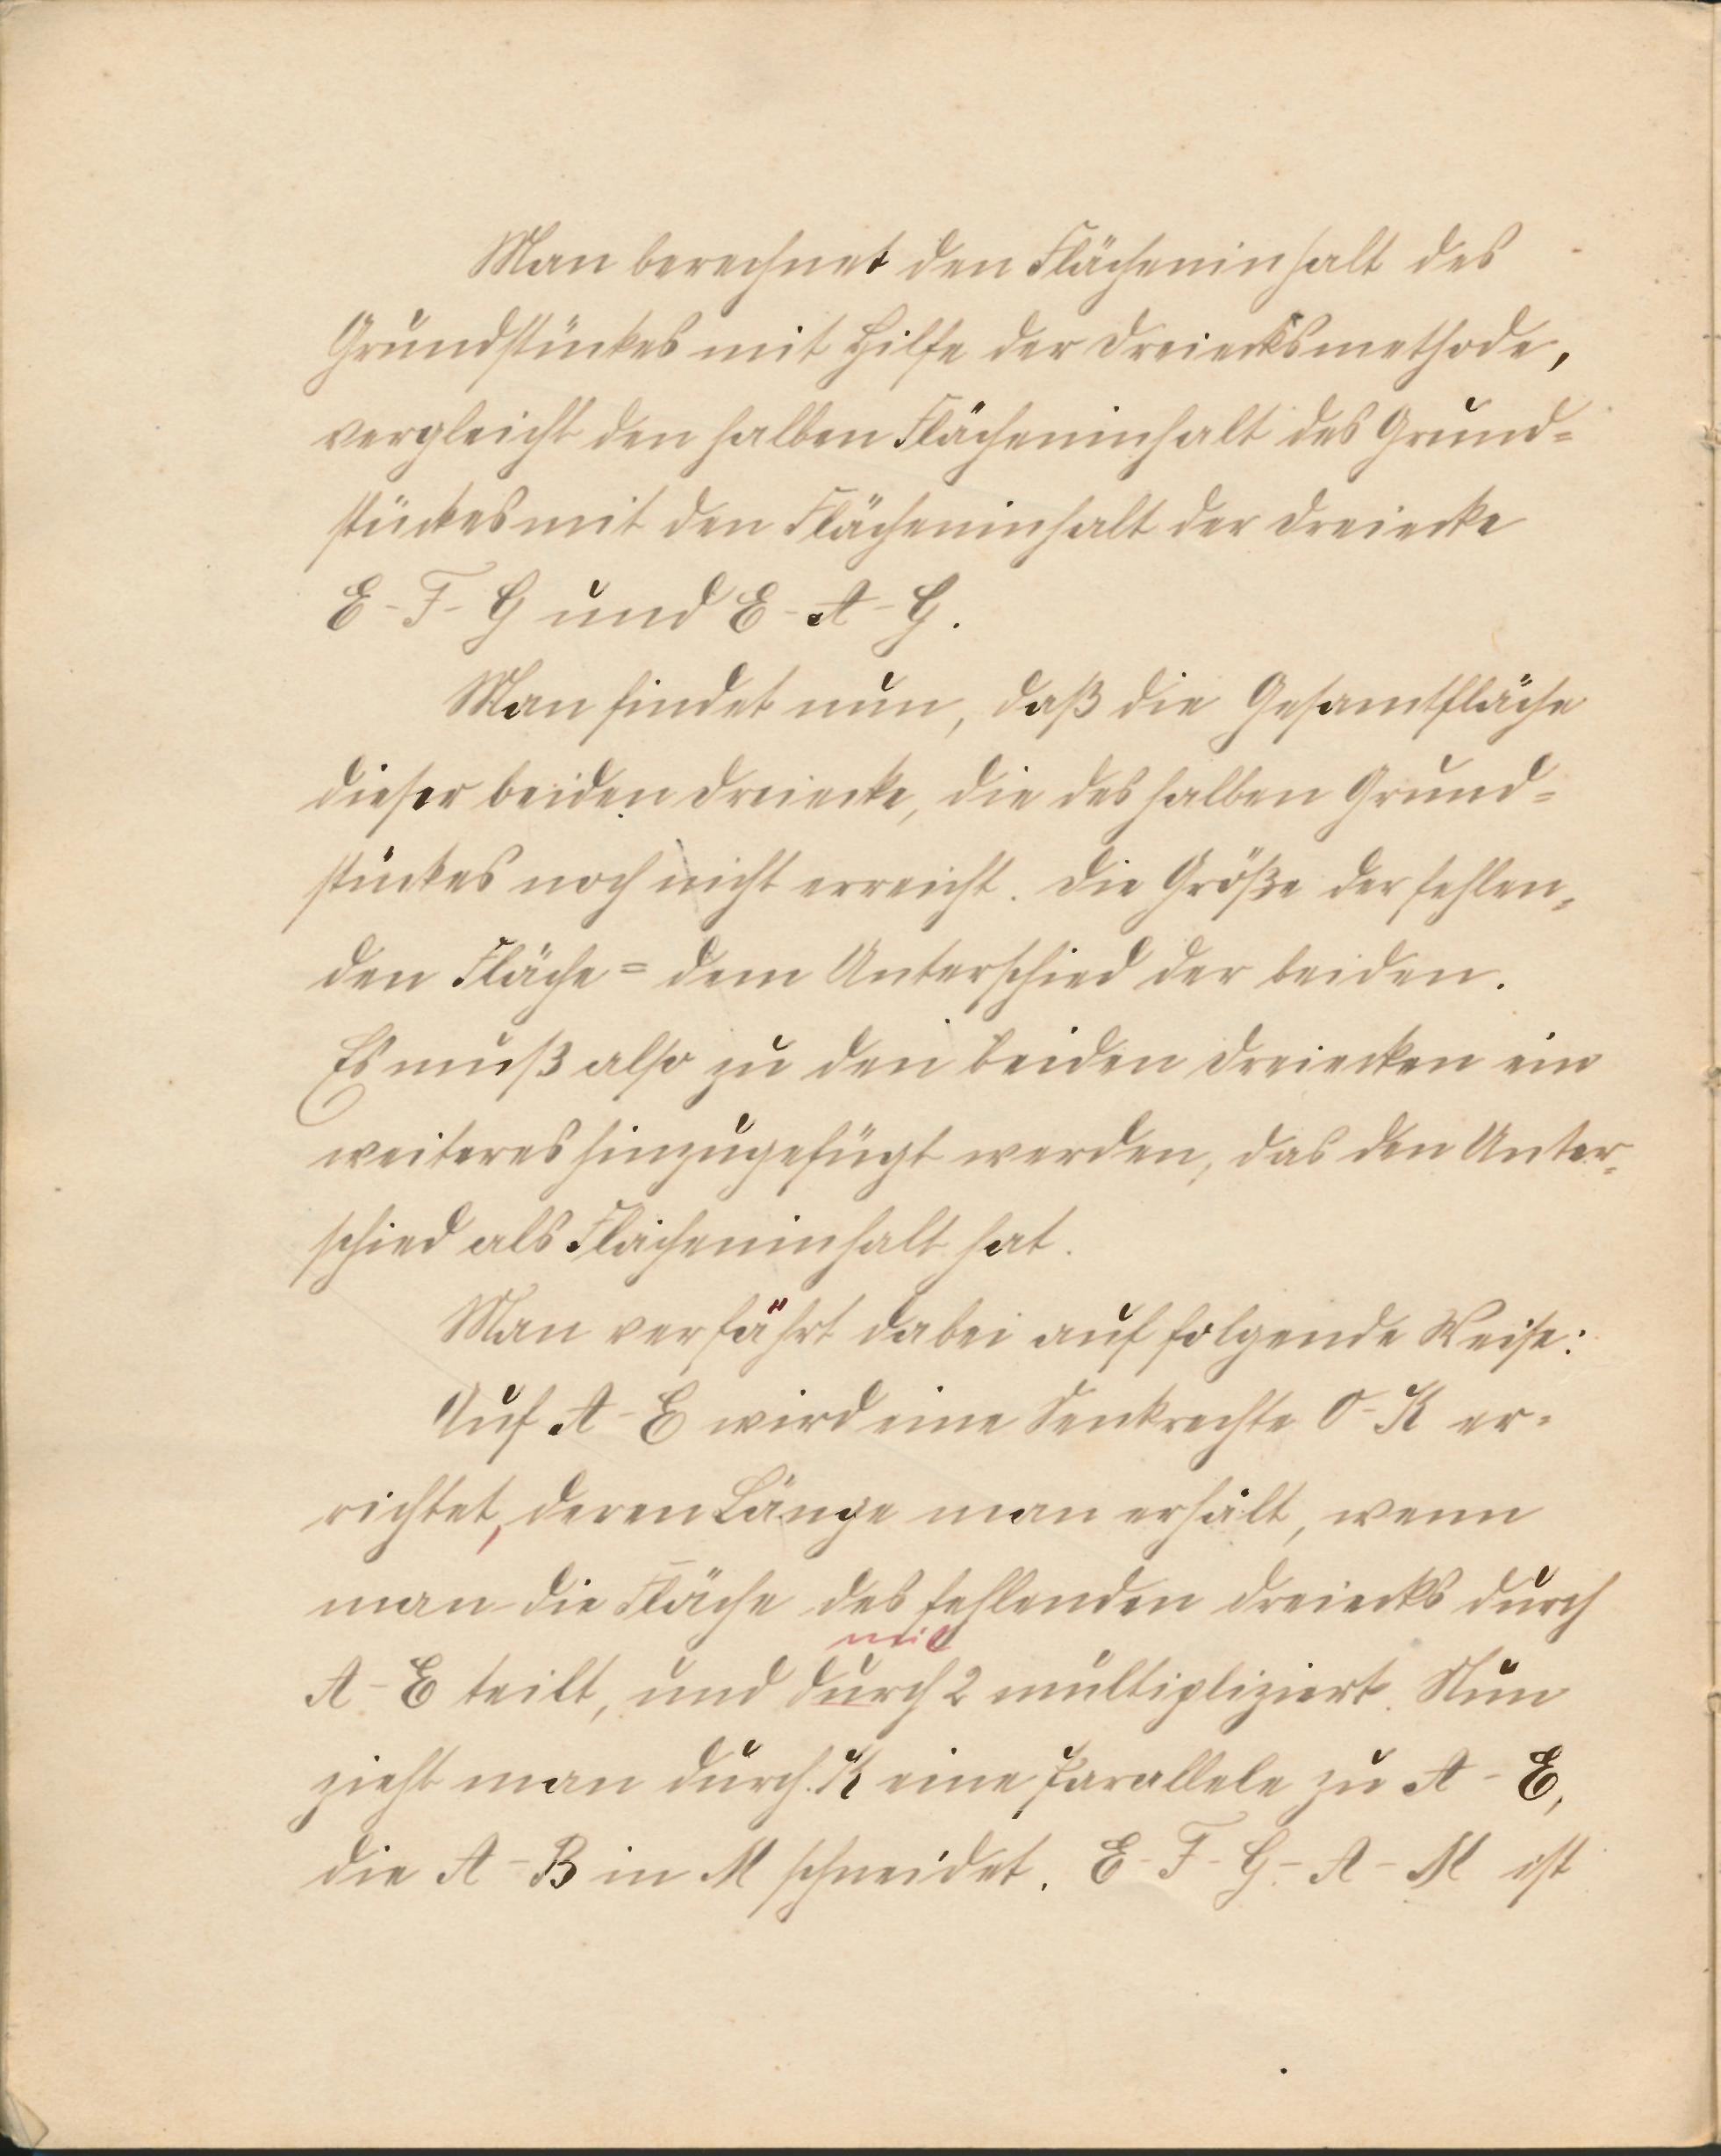 Man berechnet den Flächeninhalt des
Grundstückes mit Hilfe der Dreiecksmethode,
vergleicht den halben Flächeninhalt des Grund=
stückes mit den Flächeninhalt der Dreiecke
E-F-G und E-A-G.
Man findet nun, daß die Gesamtfläche
dieser beiden Dreiecke, die des halben Grund=
stückes noch nicht erreicht. Die Größe der fehlen=
den Fläche = dem Unterschied der beiden.
Es muß also zu den beiden Dreiecken ein
weiteres hinzugefügt werden, das den Unter=
schied als Flächeninhalt hat.
Man verfährt dabei auf folgende Weise:
Auf A-E wird eine Senkrechte O-K er=
richtet, deren Länge man erhält, wenn
man die Fläche des fehlenden Dreiecks durch
mit
A-E teilt, und durch 2 multipliziert. Nun
zieht man durch K eine Parallele zu A-E,
die A-B in M schneidet. E-F-G-A-M ist